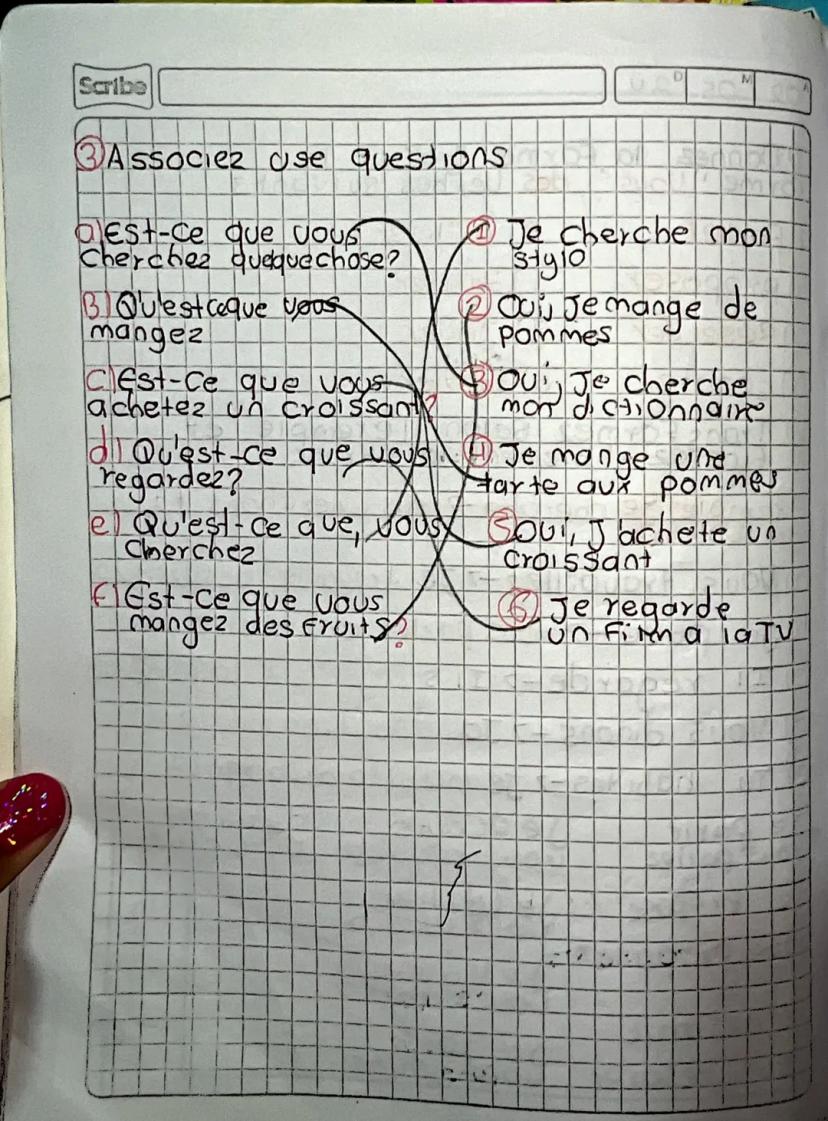 Scribe
D M A
③ Associez use questions
a) Est-ce que vous
cherchez quequechose?
B) Qu'estceque vous
mangez
c) Est-ce que vous
achetez un croissant?
d) Qu'est-ce que vous
regardez?
e) Qu'est-ce que, vous
cherchez
f) Est-ce que vous
mangez des fruits?
① Je cherche mon
stylo
② Oui, Je mange de
pommes
③ Oui, Je cherche
mon dictionnaire
④ Je mange une
tarte aux pommes
⑤ Oui, J'achete un
croissant
⑥ Je regarde
un a la TV